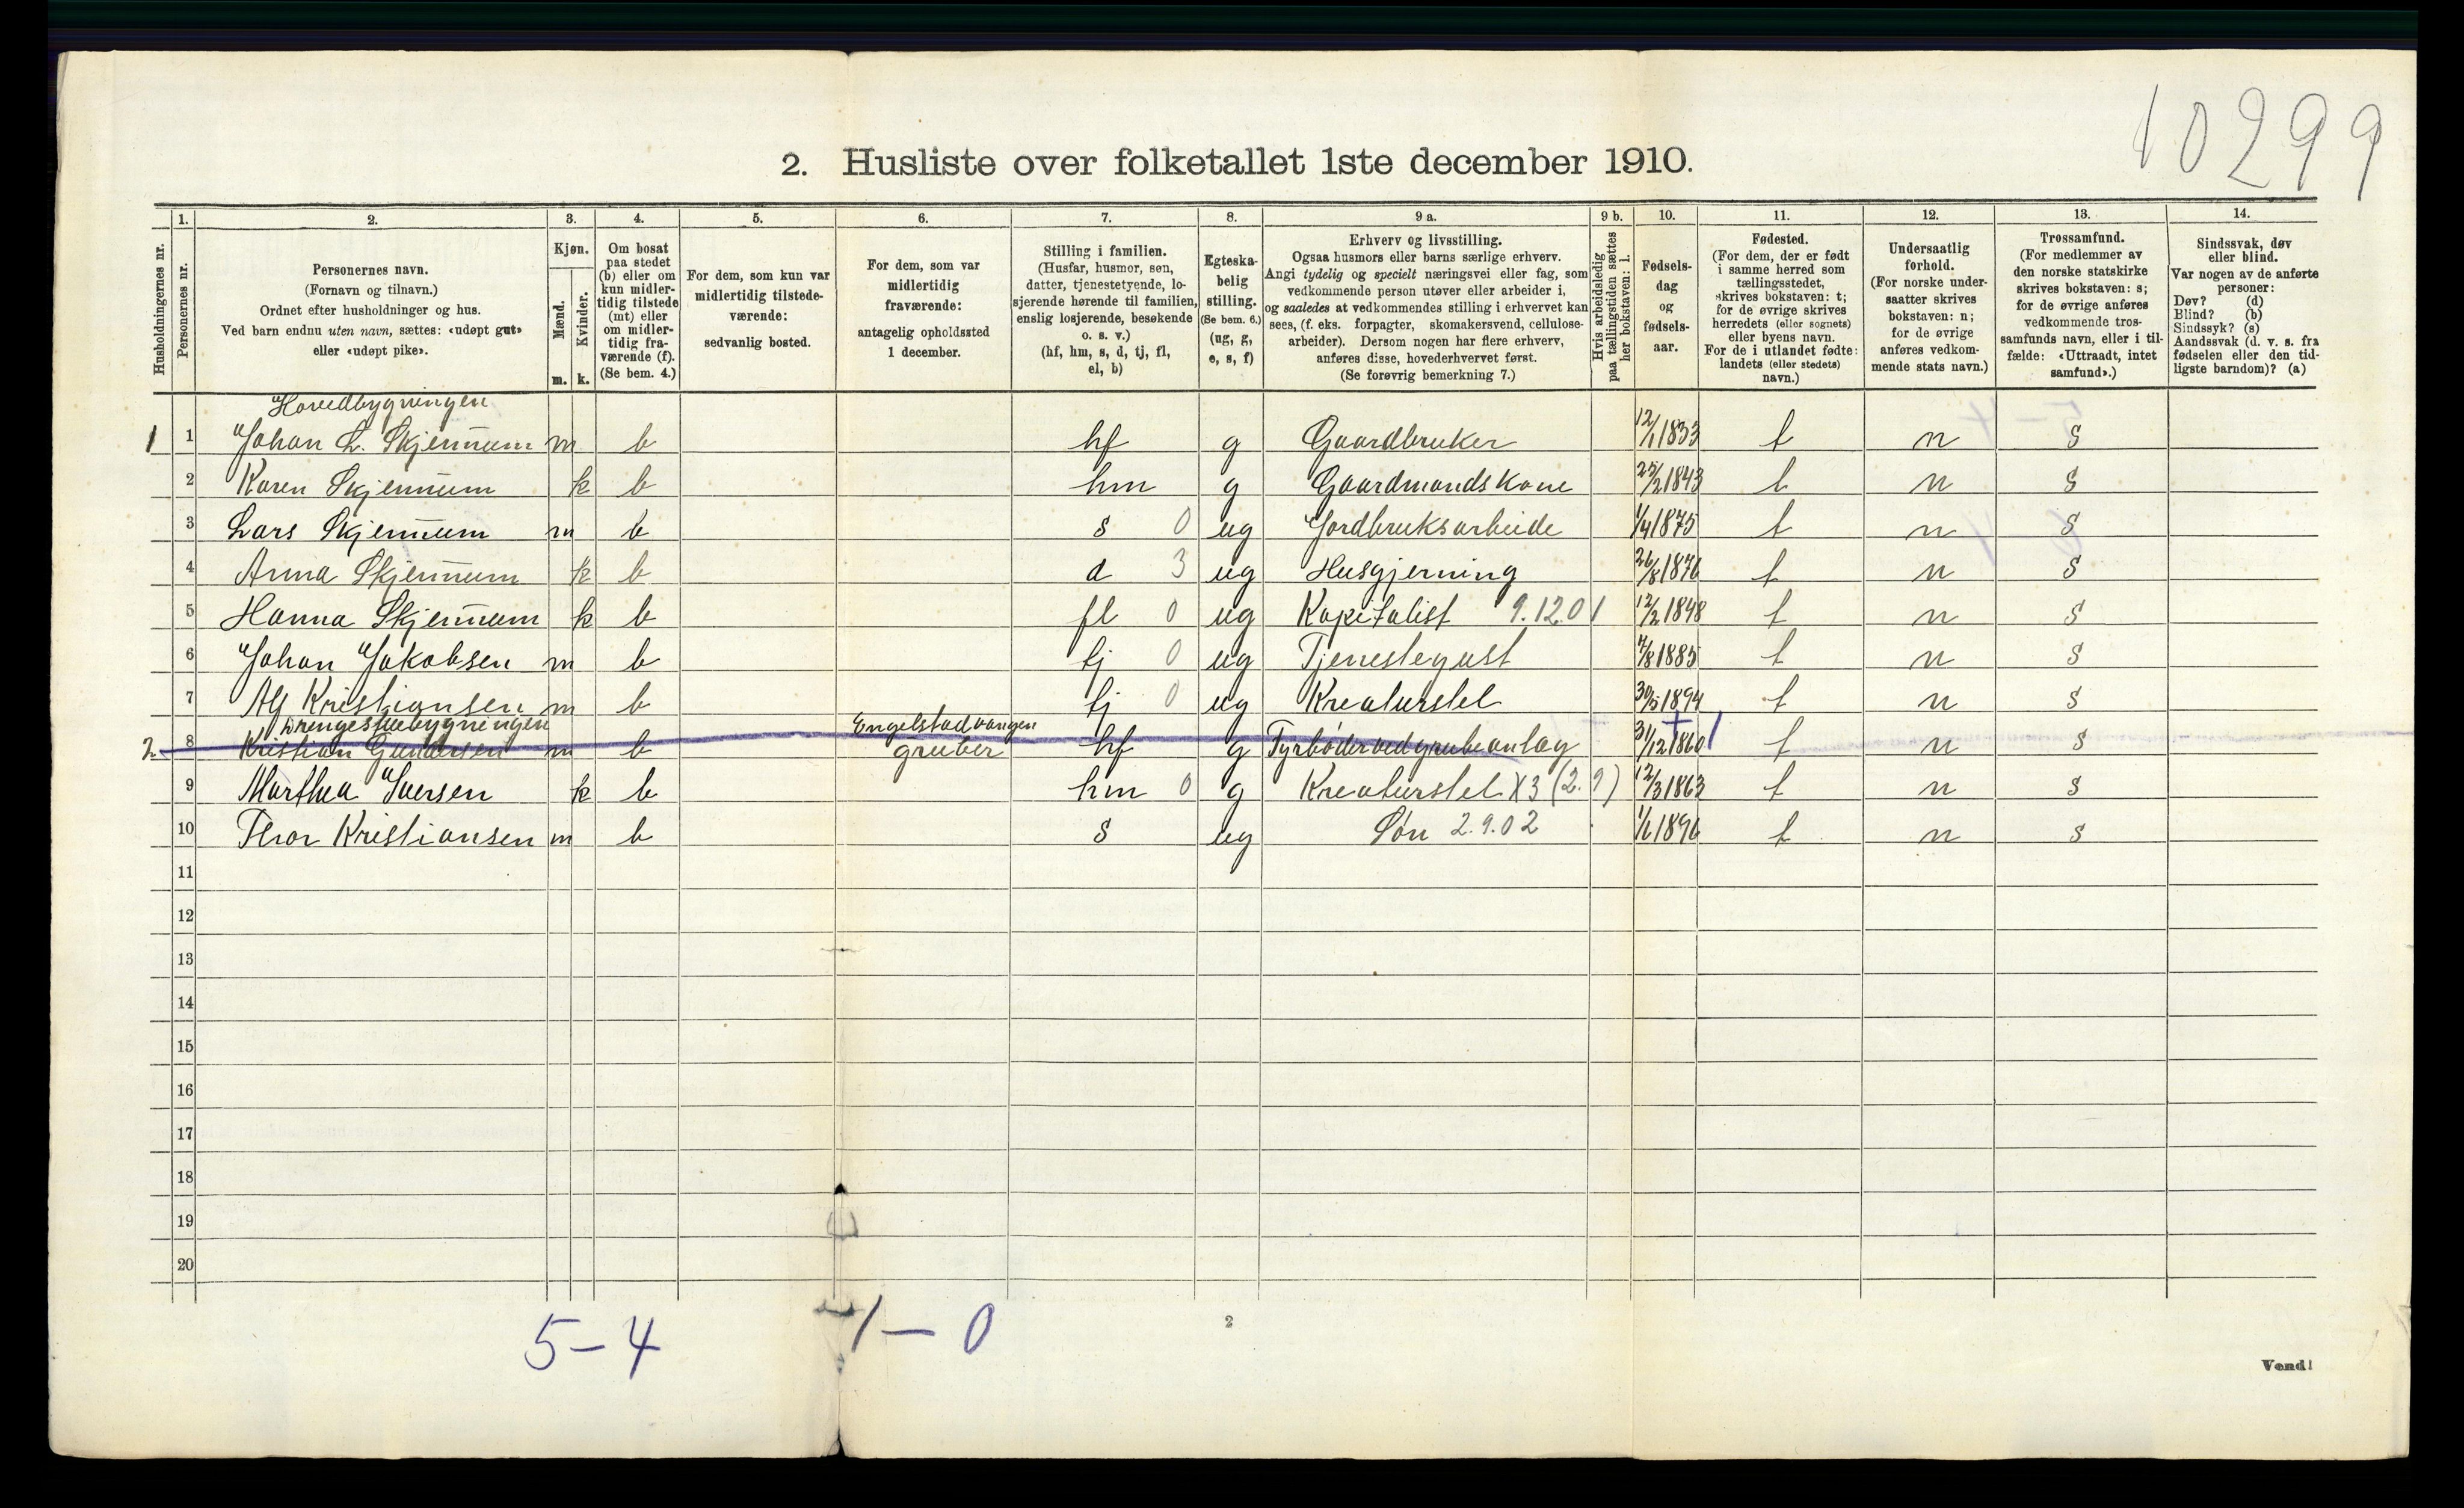 10299
2. Husliste over folketallet 1ste december 1910.
Husholdningernes nr.
1.
Personernes nr.
2.
Personernes navn.
(Fornavn og tilnavn.)
Ordnet efter husholdninger og hus.
Ved barn endnu uten navn, sættes: «udøpt gut»
eller «udøpt pike».
3.
Kjøn.
Mænd.
Kvinder.
m. k.
4.
Om bosat
paa stedet
(b) eller om
kun midler-
tidig tilstede
(mt) eller
om midler-
tidig fra-
værende (f).
(Se bem. 4.)
5.
For dem, som kun var
midlertidig tilstede-
værende:
sedvanlig bosted.
6.
For dem, som var
midlertidig
fraværende:
antagelig opholdssted
1 december.
7.
Stilling i familien.
(Husfar, husmor, søn,
datter, tjenestetyende, lo-
sjerende hørende til familien,
enslig losjerende, besøkende
o. s. v.)
(hf, hm, s, d, tj, fl,
el, b)
8.
Egteska-
belig
stilling.
(Se bem. 6.)
(ug, g,
e, s, f)
9 a.
Erhverv og livsstilling.
Ogsaa husmors eller barns særlige erhverv.
Angi tydelig og specielt næringsvei eller fag, som
vedkommende person utøver eller arbeider i,
og saaledes at vedkommendes stilling i erhvervet kan
sees, (f. eks. forpagter, skomakersvend, cellulose-
arbeider). Dersom nogen har flere erhverv,
anføres disse, hovederhvervet først.
(Se forøvrig bemerkning 7.)
9 b.
Hvis arbeidsledig
paa tællingstiden sættes
her bokstaven: l.
10.
Fødsels-
dag
og
fødsels-
aar.
11.
Fødested.
(For dem, der er født
i samme herred som
tællingsstedet,
skrives bokstaven: t;
for de øvrige skrives
herredets (eller sognets)
eller byens navn.
For de i utlandet fødte:
landets (eller stedets)
navn.)
12.
Undersaatlig
forhold.
(For norske under-
saatter skrives
bokstaven: n;
for de øvrige
anføres vedkom-
mende stats navn.)
13.
Trossamfund.
(For medlemmer av
den norske statskirke
skrives bokstaven: s;
for de øvrige anføres
vedkommende tros-
samfunds navn, eller i til-
fælde: «Uttraadt, intet
samfund».)
14.
Sindssvak, døv
eller blind.
Var nogen av de anførte
personer:
Døv? (d)
Blind? (b)
Sindssyk? (s)
Aandssvak (d. v. s. fra
fødselen eller den tid-
ligste barndom)? (a)
Hovedbygningen
1 1 Johan L. Skjennum m b hf g Gaardbruker 12/1 1833 t n s
2 Karen Skjennum k b hm g Gaardmandskone 25/2 1843 t n s
3 Lars Skjennum m b s 0 ug Jordbruksarbeide 1/4 1875 t n s
4 Anna Skjennum k b d 3 ug Husgjerning 26/8 1876 t n s
5 Hanna Skjennum k b fl 0 ug Kapitalist 9.12.01 12/2 1848 t n s
6 Johan Jakobsen m b tj 0 ug Tjenestegut 4/8 1885 t n s
7 Alf Kristiansen m b tj 0 ug Kreaturstel 30/5 1894 t n s
Drengestuebygningen Engelstadvangen
2 8 Kristian Gundersen m b gruber hf g Fyrbøder ved grubeanlæg 31/12 1860 t n s
9 Marthea Iversen k b hm 0 g Kreaturstel X3 (2.9) 12/3 1863 t n s
10 Thor Kristiansen m b s ug Søn 2.9.02 1/1 1896 t n s
11
12
13
14
15
16
17
18
19
20
5-4 1-0
2
Vend!